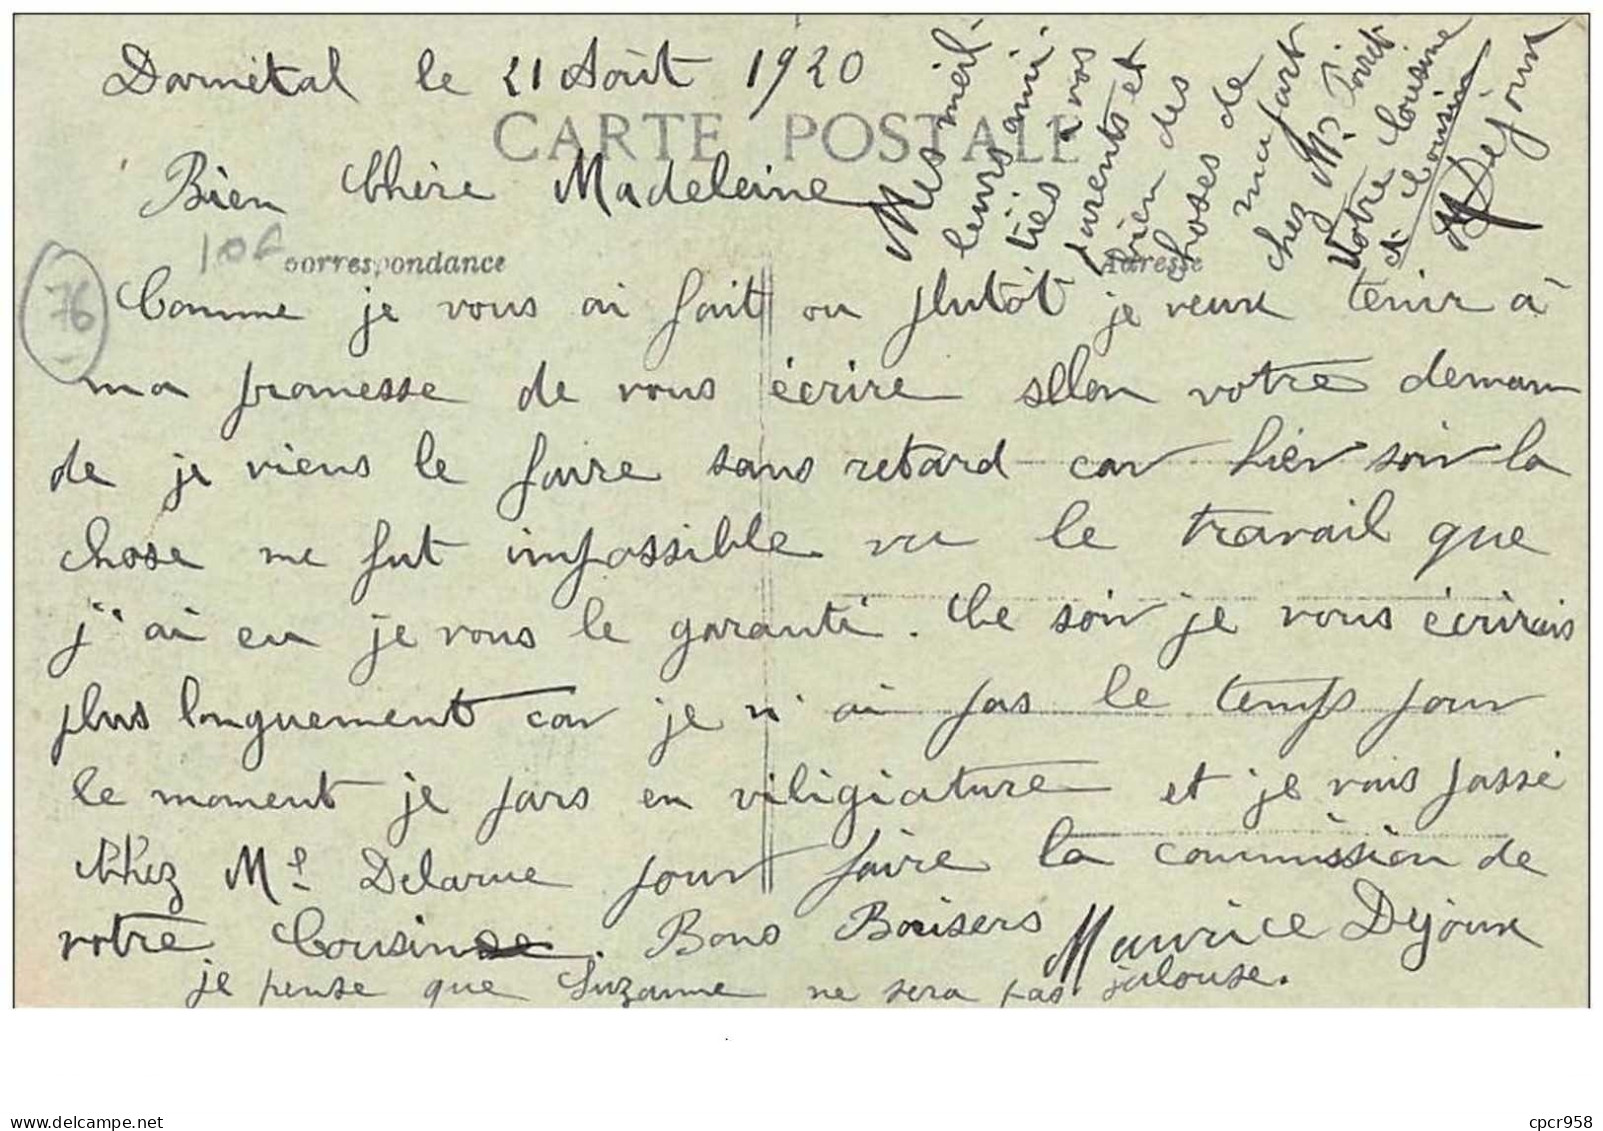 Darnétal le 21 Août 1920
CARTE POSTALE
Bien Chère Madeleine
10F
Correspondance
Adresse
76
Comme je vous ai fait ou plutôt je veux tenir à
ma promesse de vous écrire sellon votre deman
de je viens le faire sans retard car hier soir la
chose me fut impossible vu le travail que
j'ai eu je vous le garanti. Ce soir je vous écrirais
plus longuement car je n'ai pas le temps pour
le moment je pars en viligiature et je vais passé
Chez Ml Delarue pour faire la commission de
votre Cousin. Bons Baisers Maurice Dejoux
je pense que Suzanne ne sera pas jalouse.
Mes meil-
leurs ami
tiés à vos
parents et
bien des
choses de
ma part
chez Mr Poiret
Votre Cousine
et Cousin
M Dejoux
cpcr958